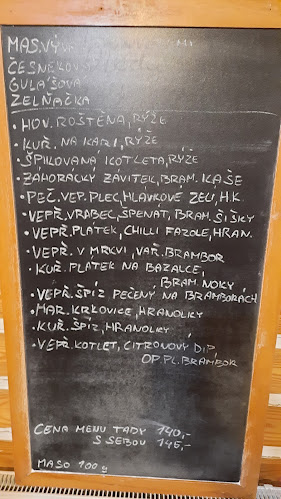 MAS. VÝV
ČESNEKOV
GULÁŠOVÁ
ZELŇAČKA
• HOV. ROŠTĚNÁ, RÝŽE
• KUŘ. NA KARI, RÝŽE
• ŠPIKOVANÁ KOTLETA, RÝŽE
• ZÁHORÁCKÝ ZÁVITEK, BRAM. KAŠE
• PEČ. VEP. PLEC, HLÁVKOVÉ ZELÍ, H.K.
• VEPŘ. VRABEC, ŠPENÁT, BRAM. ŠIŠKY
• VEPŘ. PLÁTEK, CHILLI FAZOLE, HRAN.
• VEPŘ. V MRKVI, VAŘ. BRAMBOR
• KUŘ. PLÁTEK NA BAZALCE,
BRAM. NOKY
• VEPŘ. ŠPÍZ PEČENÝ NA BRAMBORÁCH
• MAR. KRKOVICE, HRANOLKY
• KUŘ. ŠPÍZ, HRANOLKY
• VEPŘ. KOTLET, CITRÓNOVÝ DIP
OP. PL. BRAMBOR
CENA MENU TADY 140,-
S SEBOU 145,-
MASO 100g